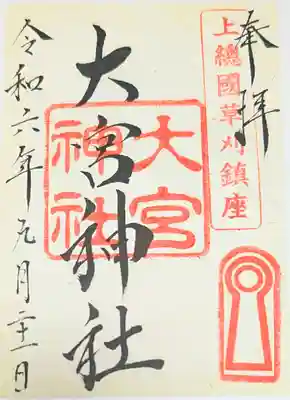 奉拝
上總國草刈鎮座
大宮神社
大宮
神社
令和六年九月二十一日